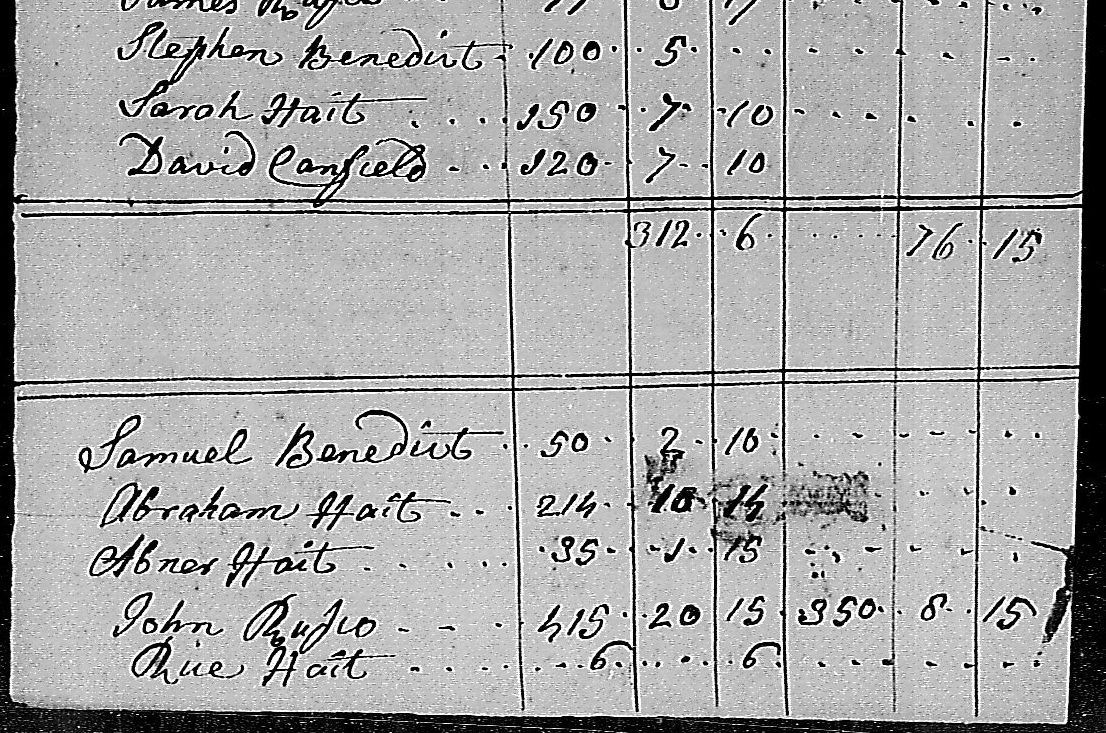 Stephen Benedict 100 5
Sarah Hait 150 7 10
David Canfield 120 7 10
312 6 76 15
Samuel Benedict 50 2 10
Abraham Hait 214 10 14
Abner Hait 35 1 15
John Rusco 415 20 15 350 8 15
Rice Hait 6 6